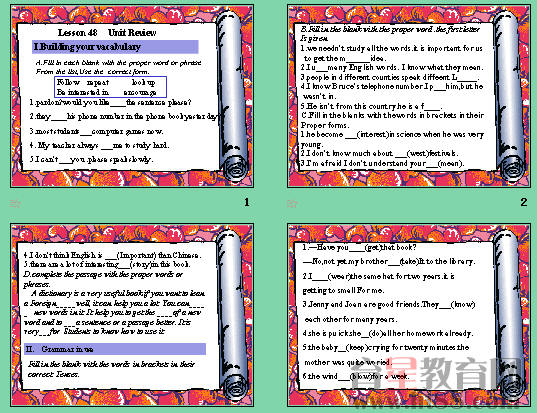 Lesson 48 Unit Review
I.Building your vacabulary
A.Fill in each blank with the proper word or phrase
From the list,Use the correct form.
Follow repeat look up
Be interested in encourage
1.pardon?would you like____the sentence please?
2.they____his phone number in the phone bookyester day
3.most students____computer games now.
4. My teacher always ___me to study hard.
5.I can't___you .please speak slowly.
1
B.Fill in the blank with the proper word .the first letter
Is given.
1.we needn't study all the words.it is important for us
to get the m_____idea.
2.I u___many English words. I know what they mean.
3.people in different counties speak diffeent L____.
4.I know Bruce's telephone number.I p___him,but he
wasn't in.
5.He isn't from this country.he is a f____.
C.Fill in the blanks with the words in brackets in their
Proper forms.
1.he become ___(interest)in science when he was very
young.
2.I don't know much about ___(west)festivels.
3.I'm afreid I don't understand your___(mean).
2
4.I don't think English is ___(Important) than Chinese.
5.there are a lot of interesting___(story)in this book.
D.complete the passage with the proper words or
phrases.
A dictionary is a very useful book.if you want to lean
a Foreign____ well,it can help you a lot. You can____
__ new words in it. It help you to get the____of a new
word and to___a sentence or a passage better. It is
very___for Students to know how to use it.
II. Grammar in use
Fill in the blank with the words in brackets in their
correct Tenses.
1.—Have you____(get)that book?
—No,not yet.my brother___(take)It to the library.
2.I____(wear)the same hat for two years.it is
getting to small For me.
3.Jenny and Joan are good friends.They___(know)
each other for many years.
4.she is quick.she__(do)all her homework already.
5.the baby__(keep)crying for twenty minutes.the
mother was quite worried.
6.the wind___(blow)for a week.